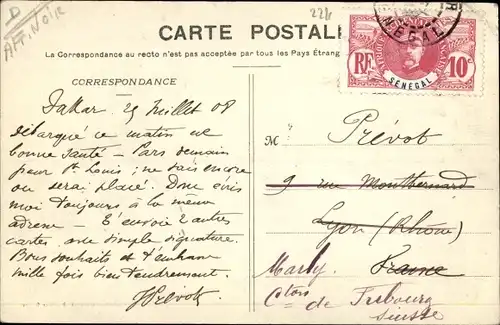 D
AFR. NOIR
226
CARTE POSTALE
La Correspondance au recto n'est pas acceptée par tous les Pays Etrang
RF SÉNÉGAL 10c
CORRESPONDANCE
Dakar 29 Juillet 08
débarqué ce matin en
bonne santé — Pars demain
pour St Louis ; ne sais encore
ou serai placé. Donc écris
moi toujours à la même
adresse — T'envoie 2 autres
cartes avec simple signature.
Bons souhaits et t'embrasse
mille fois bien tendrement.
JPrévot
M Prévot
9 rue Montbernard
Lyon (Rhône)
Marly France
Cton de Fribourg
Suisse